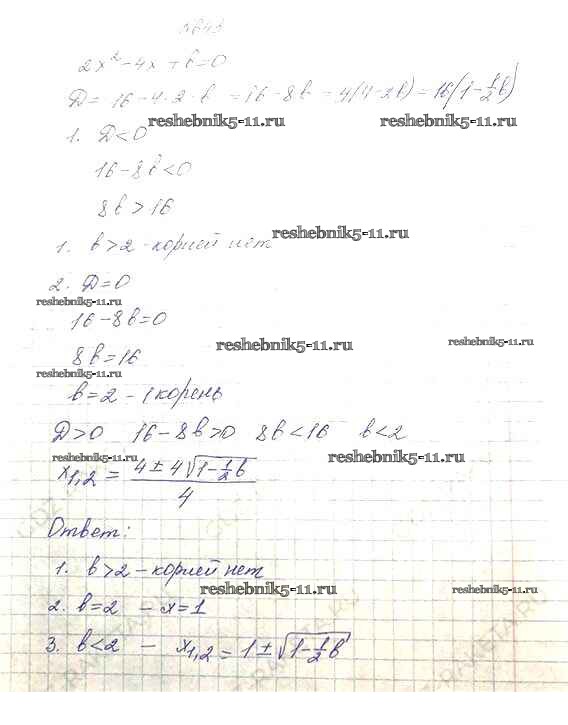 №643
2x² - 4x + b = 0
D = 16 - 4·2·b = 16 - 8b = 4(4-2b) = 16(1-½b)
reshebnik5-11.ru reshebnik5-11.ru
1. D<0
16-8b<0
8b>16
reshebnik5-11.ru
1. b>2 - корней нет
2. D=0
reshebnik5-11.ru
16-8b=0
reshebnik5-11.ru reshebnik5-11.ru
8b=16
reshebnik5-11.ru
b=2 - 1 корень
D>0 16-8b>0 8b<16 b<2
reshebnik5-11.ru
x1,2 = (4 ± 4√(1-½b))/4
Ответ:
1. b>2 - корней нет
reshebnik5-11.ru reshebnik5-11.ru
2. b=2 - x=1
3. b<2 - x1,2 = 1±√(1-½b)